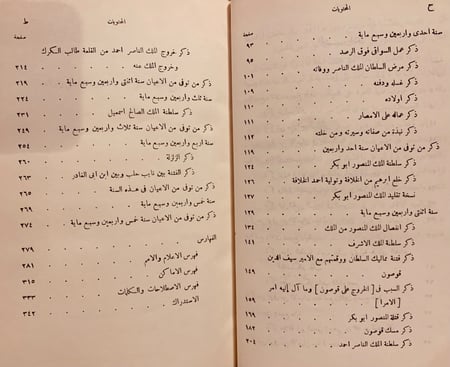 ح
المحتويات
صفحة
سنة احدى واربعين وسبع ماية
ذكر عمل السواقى فوق الرصد . . . ٩٣
ذكر مرض السلطان الملك الناصر ووفاته . . . ٩٥
ذكر غسله ودفنه . . . ١٠١
ذكر اولاده . . . ١٠٩
ذكر عماله على الامصار . . . ١١٠
نبذة من صفاته وسيرته ومن خلته . . . ١١١
ذكر من توفى من الاعيان سنة احد واربعين . . . ١١٢
ذكر سلطنة الملك المنصور ابو بكر . . . ١١٩
ذكر خلع ابرهيم من الخلافة وتولية احمد الخلافة . . . ١٢٤
نسخة تقليد الملك المنصور ابو بكر . . . ١٢٦
سنة اثنتى واربعين وسبع ماية . . . ١٢٧
ذكر انفصال الملك المنصور من الملك . . . ١٢٩
ذكر سلطنة الملك الاشرف . . . ١٣٤
ذكر فتنة مماليك السلطان ووقعتهم مع الامير سيف الدين . . . ١٤١
قوصون . . . ١٤٩
ذكر السبب فى [ الخروج على قوصون ] وما آل إليه أمر
[ الامرا ] . . . ١٥٩
ذكر قتلة المنصور ابو بكر . . . ١٦٩
ذكر مسك قوصون . . . ١٨٢
ذكر سلطنة الملك الناصر احمد . . . ٢٠٤
المحتويات
ط
صفحة
ذكر خروج الملك الناصر احمد من القلعة طالب الكرك
وخروج الملك عنه . . . ٢١٤
ذكر من توفى من الاعيان سنة اثنتى واربعين وسبع ماية . . . ٢١٩
سنة ثلاث واربعين وسبع ماية . . . ٢٢٤
ذكر سلطنة الملك الصالح اسمعيل . . . ٢٣١
ذكر من توفى من الاعيان سنة ثلاث واربعين وسبع ماية . . . ٢٤٩
سنة اربع واربعين وسبع ماية . . . ٢٥٤
ذكر الزلزلة . . . ٢٦٠
ذكر الفتنة بين نايب حلب وبين ابن ابى الغادر . . . ٢٦٣
ذكر من توفى من الاعيان فى هذه السنة . . . ٢٦٥
سنة خمس واربعين وسبع ماية . . . ٢٦٩
ذكر من توفى من الاعيان سنة خمس واربعين وسبع ماية . . . ٢٧٤
الفهارس . . . ٢٧٩
فهرس الاعلام والامم . . . ٢٨١
فهرس الاماكن . . . ٣١٥
فهرس الاصطلاحات والكلمات . . . ٣٣٣
الاستدراك . . . ٣٤٢